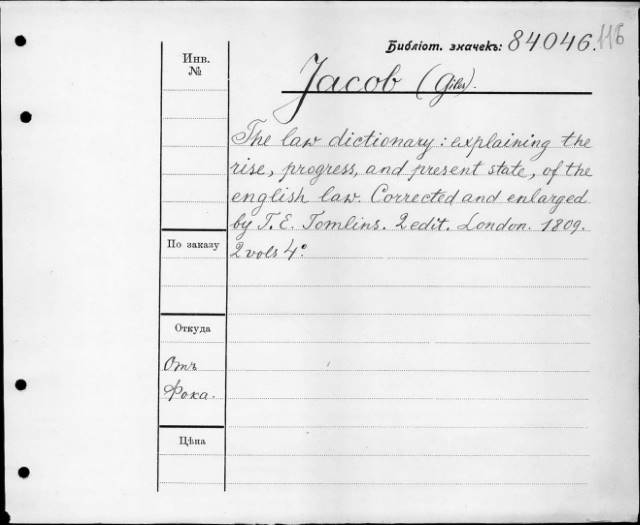 Библіот. значекъ: 84046. 116
Инв.
№
Jacob (Giles).
The law dictionary: explaining the
rise, progress, and present state, of the
english law. Corrected and enlarged
by T. E. Tomlins. 2 edit. London. 1809.
По заказу
2 vols 4°.
Откуда
Отъ
Фока.
Цѣна